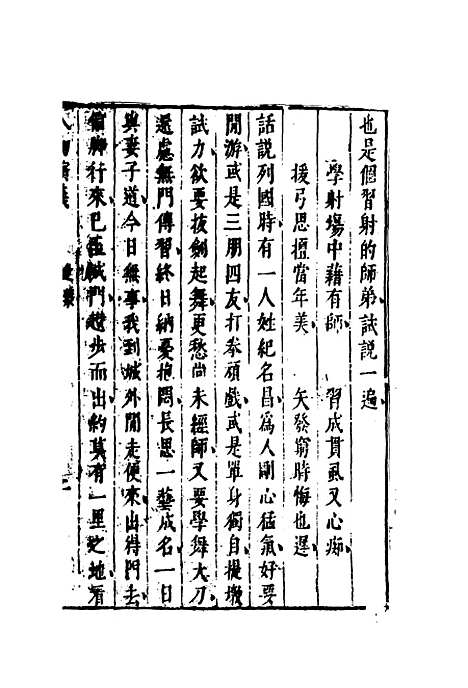 也是個習射的師弟試說一遍
學射場中藉有師　習成貫虱又心痴
援弓思擅當年美　矢發窮時悔也遲
話說列國時有一人姓紀名昌爲人剛心猛氣好要
閒游或是三朋四友打拳頑戲或是單身獨自提墩
試力欲要拔劍起舞更愁尚未經師又要學舞大刀
還慮無門傳習終日納憂抱悶長思一藝成名一日
與妻子道今日無事我到城外閒走便來出得門去
行來已至城門趨步而出約莫有一里之地看